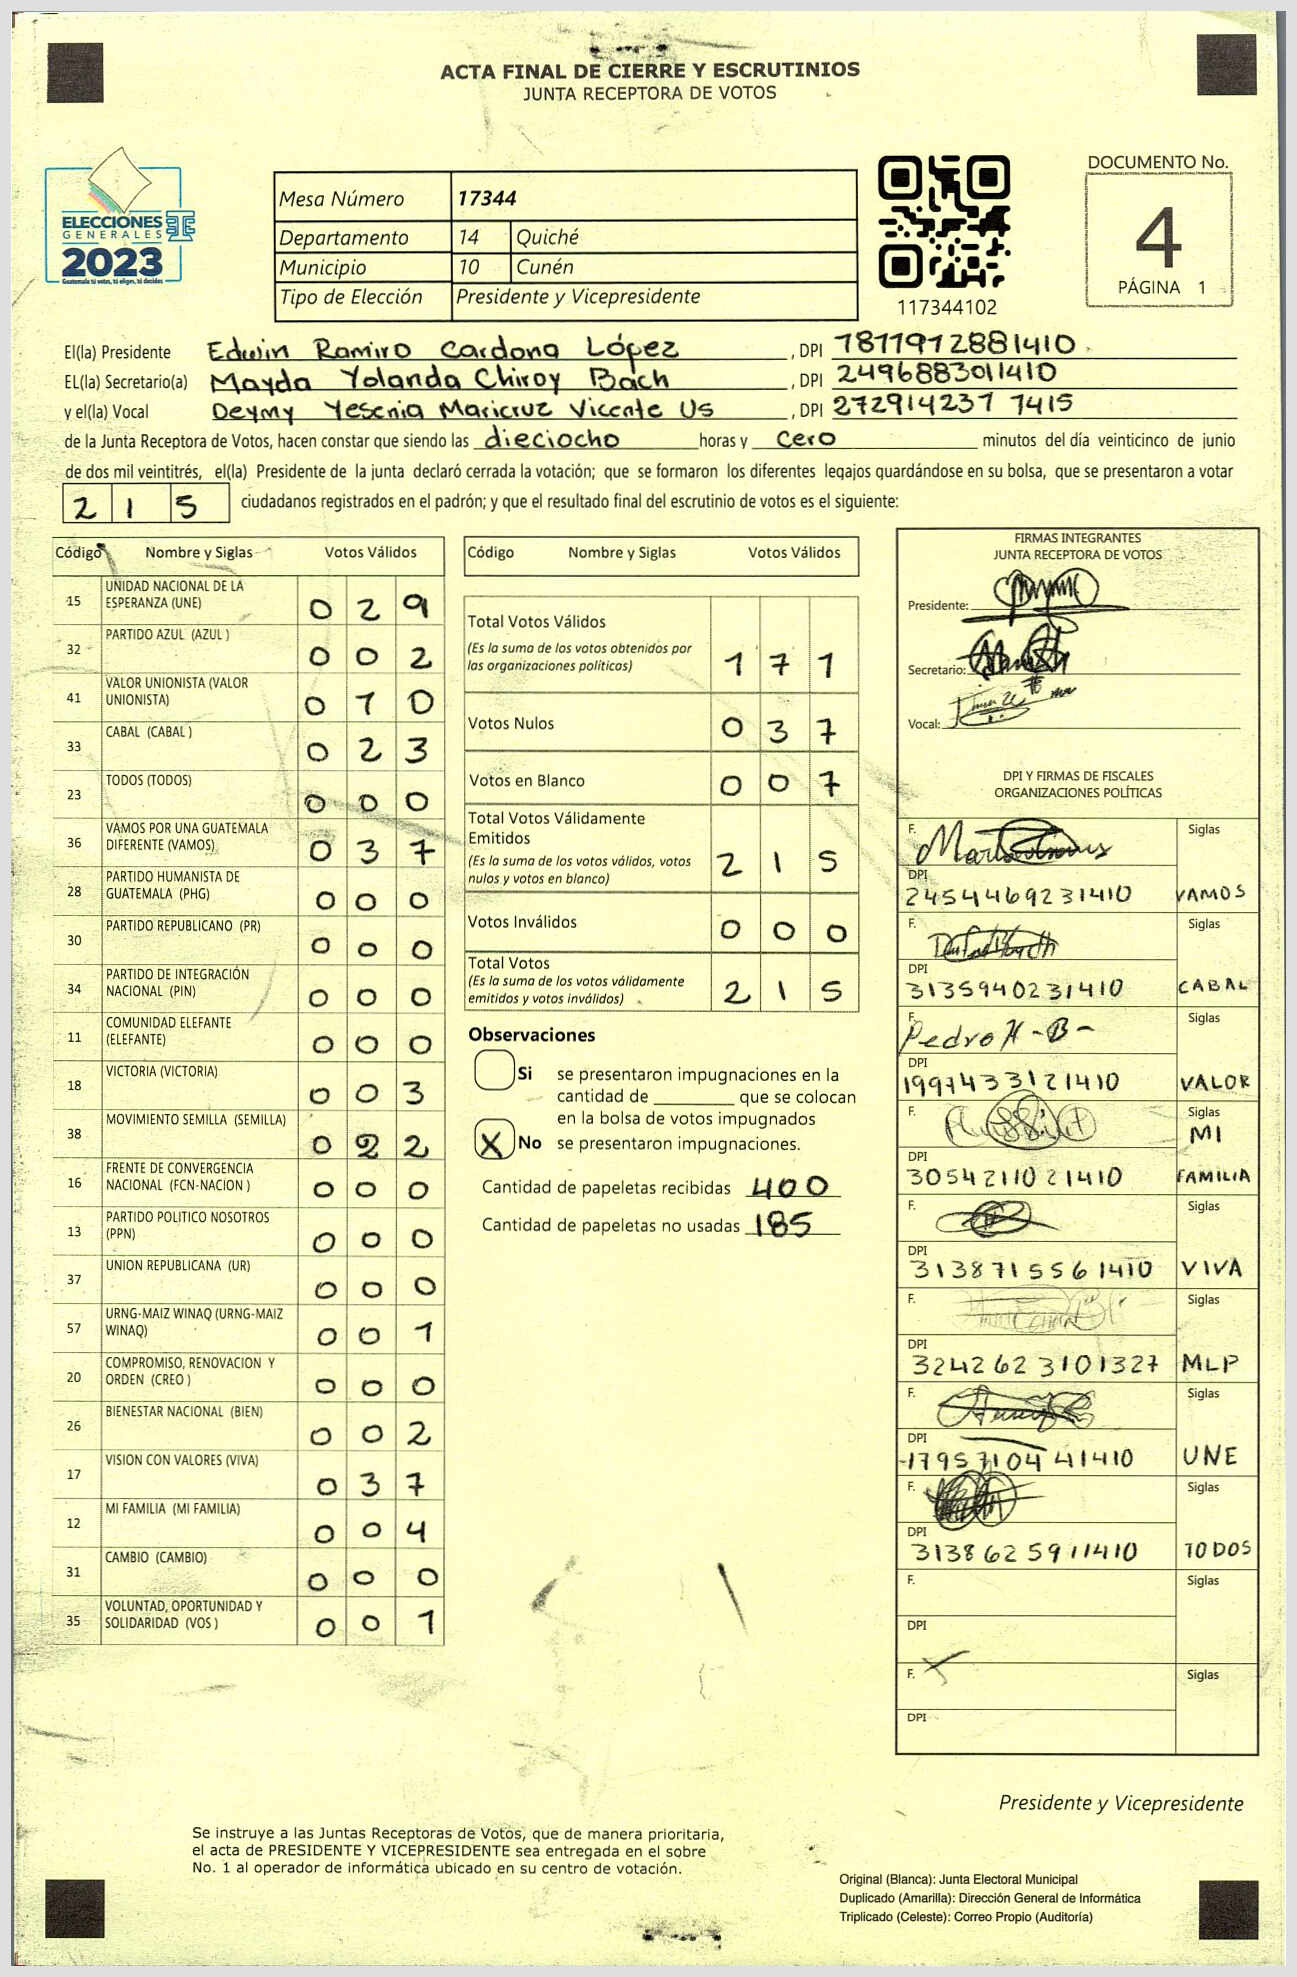 ACTA FINAL DE CIERRE Y ESCRUTINIOS
JUNTA RECEPTORA DE VOTOS
ELECCIONES
GENERALES
2023
Guatemala tú votas, tú eliges, tú decides
Mesa Número 17344
Departamento 14 Quiché
Municipio 10 Cunén
Tipo de Elección Presidente y Vicepresidente
117344102
DOCUMENTO No.
4
PÁGINA 1
El(la) Presidente Edwin Ramiro Cardona López, DPI 7811912881410
EL(la) Secretario(a) Mayda Yolanda Chiroy Bach, DPI 2496883011410
y el(la) Vocal Deymy Yesenia Maricruz Vicente Us, DPI 272914237 1415
de la Junta Receptora de Votos, hacen constar que siendo las dieciocho horas y cero minutos del día veinticinco de junio
de dos mil veintitrés, el(la) Presidente de la junta declaró cerrada la votación; que se formaron los diferentes legajos guardándose en su bolsa, que se presentaron a votar
215 ciudadanos registrados en el padrón; y que el resultado final del escrutinio de votos es el siguiente:
Código Nombre y Siglas Votos Válidos
15 UNIDAD NACIONAL DE LA
ESPERANZA (UNE) 029
32 PARTIDO AZUL (AZUL ) 002
41 VALOR UNIONISTA (VALOR
UNIONISTA) 010
33 CABAL (CABAL ) 023
23 TODOS (TODOS) 000
36 VAMOS POR UNA GUATEMALA
DIFERENTE (VAMOS) 037
28 PARTIDO HUMANISTA DE
GUATEMALA (PHG) 000
30 PARTIDO REPUBLICANO (PR) 000
34 PARTIDO DE INTEGRACIÓN
NACIONAL (PIN) 000
11 COMUNIDAD ELEFANTE
(ELEFANTE) 000
18 VICTORIA (VICTORIA) 003
38 MOVIMIENTO SEMILLA (SEMILLA) 022
16 FRENTE DE CONVERGENCIA
NACIONAL (FCN-NACION ) 000
13 PARTIDO POLITICO NOSOTROS
(PPN) 000
37 UNION REPUBLICANA (UR) 000
57 URNG-MAIZ WINAQ (URNG-MAIZ
WINAQ) 001
20 COMPROMISO, RENOVACION Y
ORDEN (CREO ) 000
26 BIENESTAR NACIONAL (BIEN) 002
17 VISION CON VALORES (VIVA) 037
12 MI FAMILIA (MI FAMILIA) 004
31 CAMBIO (CAMBIO) 000
35 VOLUNTAD, OPORTUNIDAD Y
SOLIDARIDAD (VOS ) 001
Código Nombre y Siglas Votos Válidos
Total Votos Válidos
(Es la suma de los votos obtenidos por
las organizaciones políticas) 171
Votos Nulos 037
Votos en Blanco 007
Total Votos Válidamente
Emitidos
(Es la suma de los votos válidos, votos
nulos y votos en blanco) 215
Votos Inválidos 000
Total Votos
(Es la suma de los votos válidamente
emitidos y votos inválidos) 215
Observaciones
Si se presentaron impugnaciones en la
cantidad de ________ que se colocan
en la bolsa de votos impugnados
X No se presentaron impugnaciones.
Cantidad de papeletas recibidas 400
Cantidad de papeletas no usadas 185
FIRMAS INTEGRANTES
JUNTA RECEPTORA DE VOTOS
Presidente:
Secretario:
Vocal:
DPI Y FIRMAS DE FISCALES
ORGANIZACIONES POLÍTICAS
F. Siglas
DPI
2454469231410 VAMOS
F. Siglas
DPI
3135940231410 CABAL
F. Pedro H-B- Siglas
DPI
1997433121410 VALOR
F. Siglas
MI
DPI
3054211021410 FAMILIA
F. Siglas
DPI
3138715561410 VIVA
F. Siglas
DPI
3242623101327 MLP
F. Siglas
DPI
1795710441410 UNE
F. Siglas
DPI
3138625911410 TODOS
F. Siglas
DPI
F. Siglas
DPI
Presidente y Vicepresidente
Se instruye a las Juntas Receptoras de Votos, que de manera prioritaria,
el acta de PRESIDENTE Y VICEPRESIDENTE sea entregada en el sobre
No. 1 al operador de informática ubicado en su centro de votación.
Original (Blanca): Junta Electoral Municipal
Duplicado (Amarilla): Dirección General de Informática
Triplicado (Celeste): Correo Propio (Auditoría)